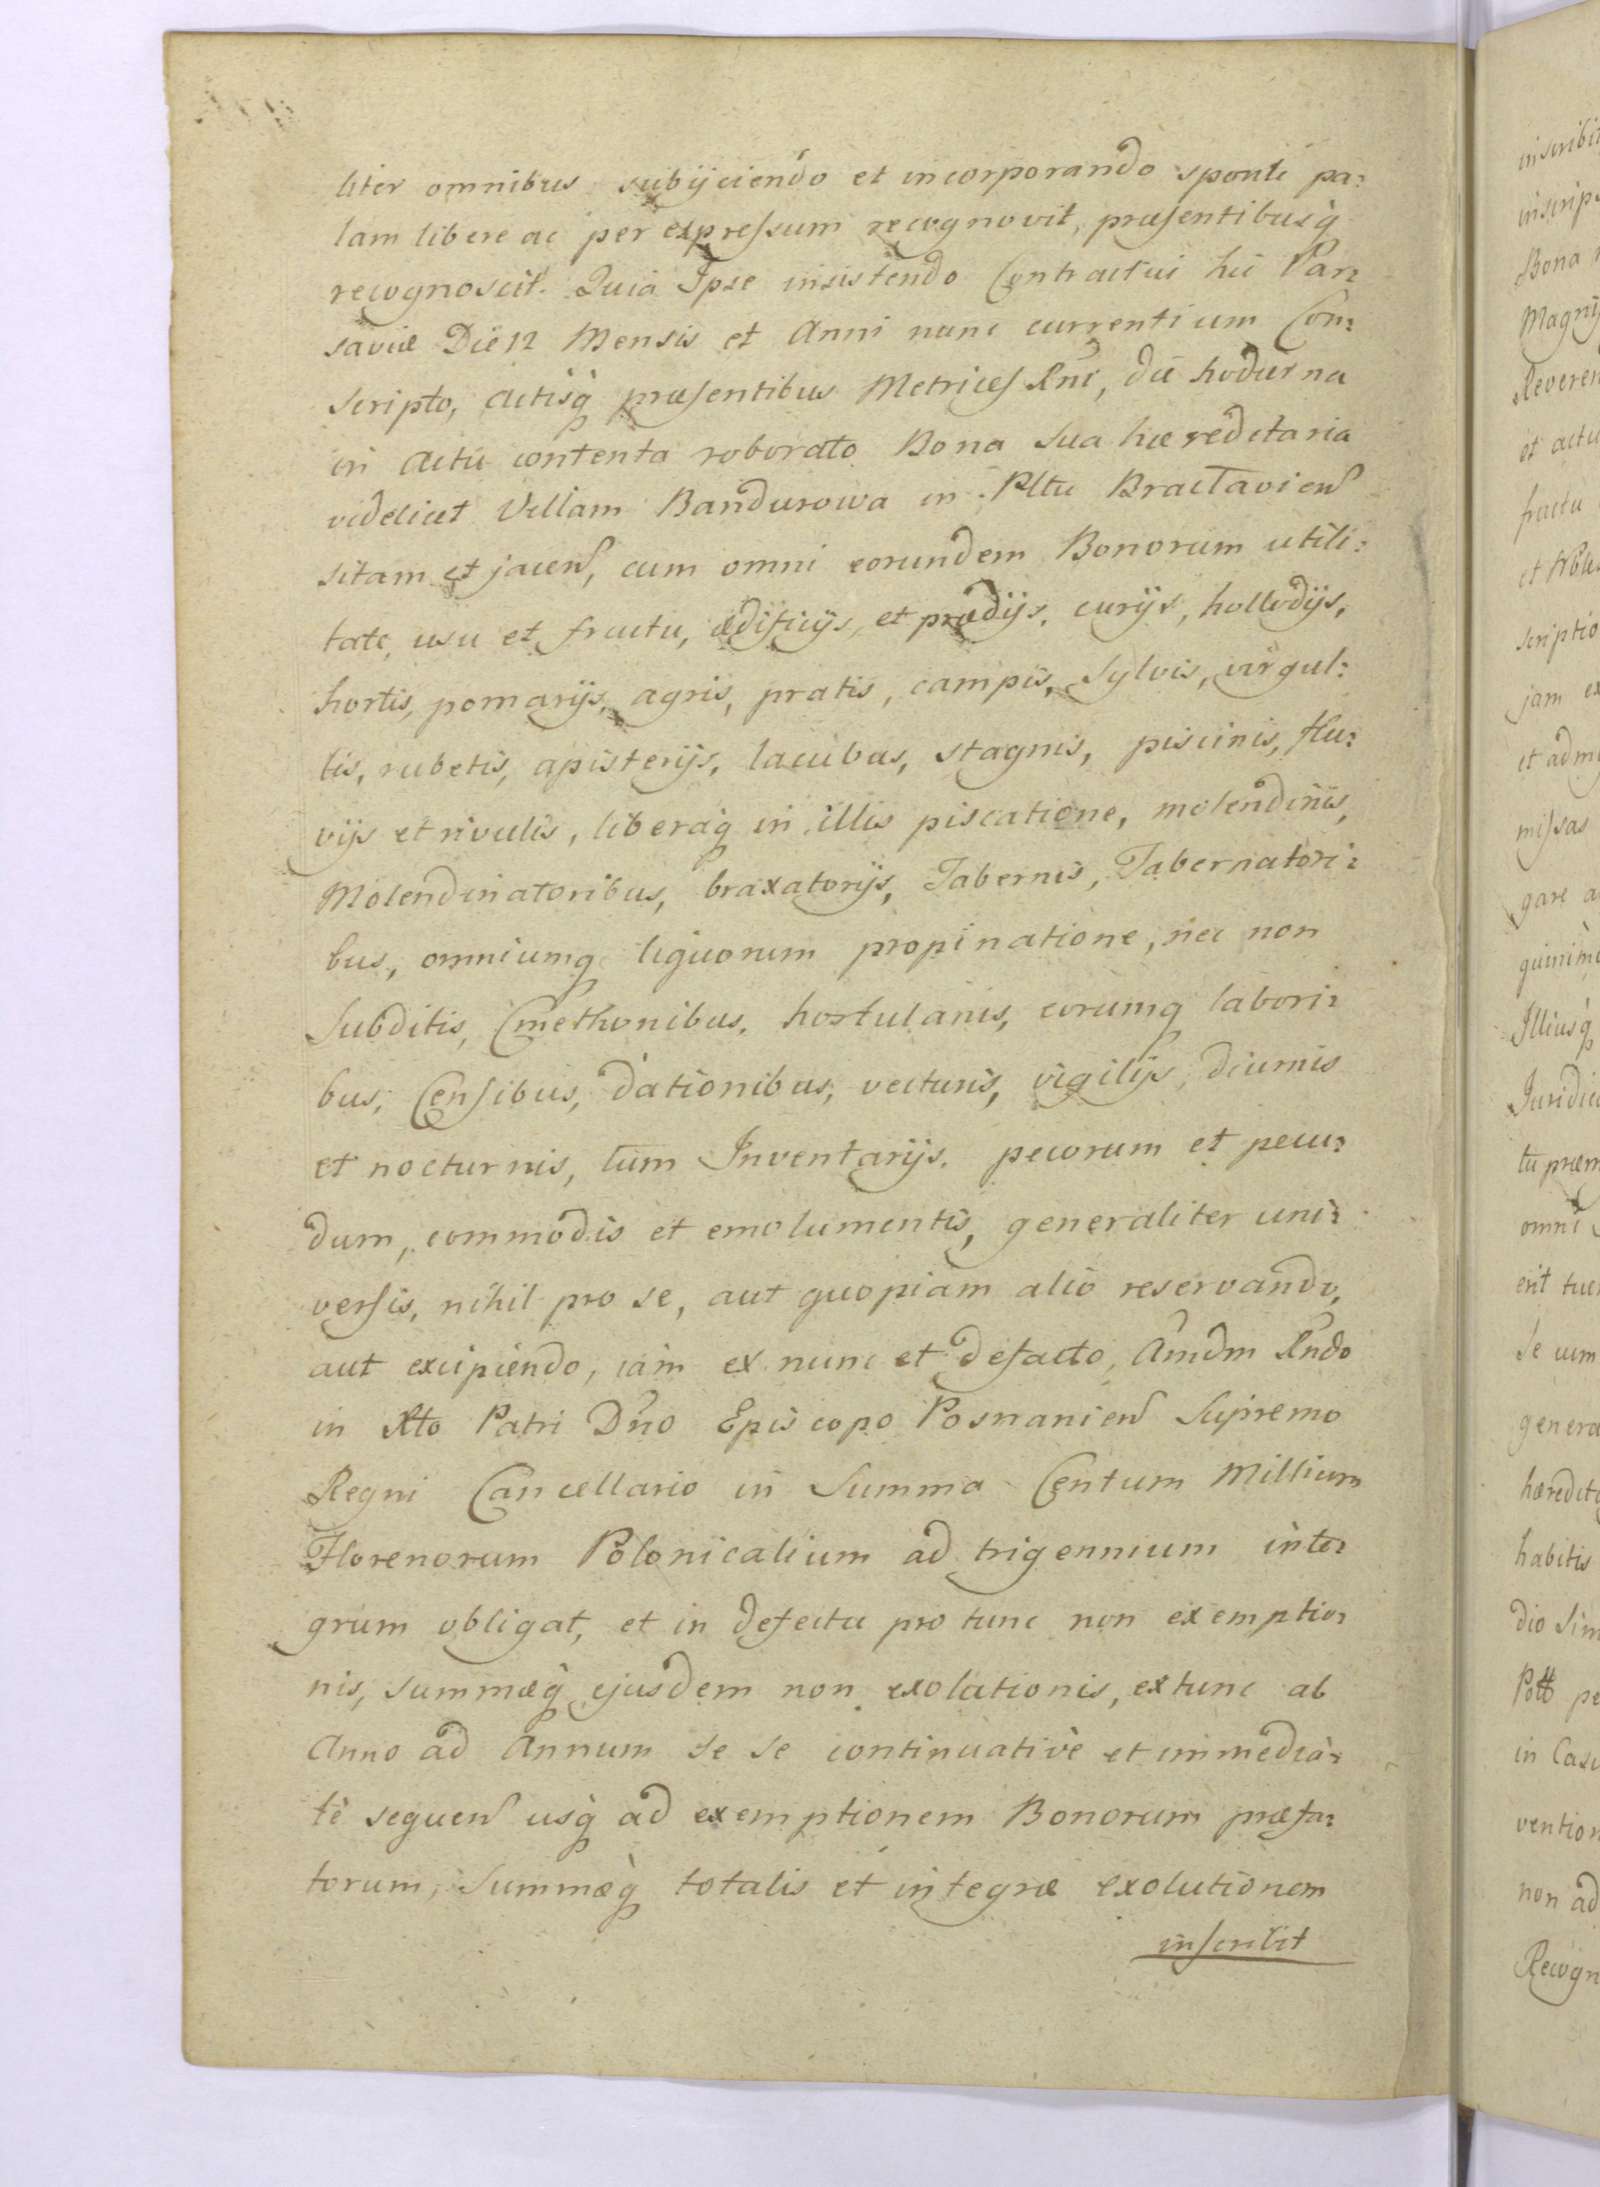 liter omnibus subijciendo et incorporando sponte pa:
lam libere ac per expressum recognovit, præsentibusq̀
recognoscit. Quia Ipse insistendo Contractui hic Var:
saviæ Die 12 Mensis et Anni nunc currentium Con:
scripto, Actisq̀ præsentibus Metrices Rni, die hodierna
in Actu contenta roborato Bona Sua hæreditaria
videlicet Villam Bandurowa in Pltu Bractavien
sitam et jacen, cum omni eorundem Bonorum utili:
tate, usu et fructu, ædificijs, et prædijs, curijs, hollodijs,
hortis, pomarijs, agris, pratis, campis, Sylvis, virgul:
tis, rubetis, apisterijs, lacubus, stagnis, piscinis, flu:
vijs et rivulis, liberaq̀ in illis piscatione, molendinis,
Molendinatoribus, braxatorijs, Tabernis, Tabernatori:
bus, omniumq liquorum propinatione, nec non
Subditis, Cmethonibus, hortulanis, eorumq labori:
bus, Censibus, dationibus, vecturis, vigilijs, diurnis
et nocturnis, tum Inventarijs, pecorum et pecu:
dum, commodis et emolumentis, generaliter uni:
versis, nihil pro se, aut quopiam alio reservando,
aut excipiendo, iam ex nunc et defacto, Amdm Rndo
in Xto Patri Dno Episcopo Posnanien Supremo
Regni Cancellario in Summa Centum Millium
Florenorum Polonicalium ad trigennium inte:
grum obligat, et in defectu pro tunc non exemptio:
nis, summæq̀ ejusdem non exolutionis, extunc ab
Anno ad Annum se se continuativè et immedia:
tè sequen usq̀ ad exemptionem Bonorum præfa:
torum, Summæq̀ totalis et integræ exolutionem
inscribit